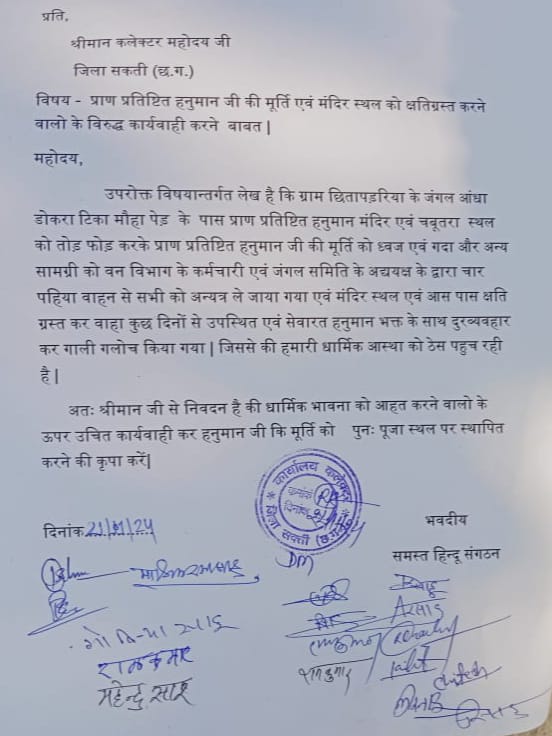 प्रति,
श्रीमान कलेक्टर महोदय जी
जिला सकती (छ.ग.)
विषय - प्राण प्रतिष्टित हनुमान जी की मूर्ति एवं मंदिर स्थल को क्षतिग्रस्त करने
वालो के विरुद्ध कार्यवाही करने बाबत |
महोदय,
उपरोक्त विषयान्तर्गत लेख है कि ग्राम छितापड़रिया के जंगल आंधा
डोकरा टिका मौहा पेड़ के पास प्राण प्रतिष्टित हनुमान मंदिर एवं चबूतरा स्थल
को तोड़ फोड़ करके प्राण प्रतिष्टित हनुमान जी की मूर्ति को ध्वज एवं गदा और अन्य
सामग्री को वन विभाग के कर्मचारी एवं जंगल समिति के अद्ययक्ष के द्वारा चार
पहिया वाहन से सभी को अन्यत्र ले जाया गया एवं मंदिर स्थल एवं आस पास क्षति
ग्रस्त कर वाहा कुछ दिनों से उपस्थित एवं सेवारत हनुमान भक्त के साथ दुरव्यवहार
कर गाली गलोच किया गया | जिससे की हमारी धार्मिक आस्था को ठेस पहुच रही
है |
अतः श्रीमान जी से निवदन है की धार्मिक भावना को आहत करने वालो के
ऊपर उचित कार्यवाही कर हनुमान जी कि मूर्ति को पुनः पूजा स्थल पर स्थापित
करने की कृपा करें|
कार्यालय कलेक्टर
क्रमांक
दिनांक
दिनांक
भवदीय
समस्त हिन्दू संगठन
DM
राजकुमार
महेन्द्र साहू